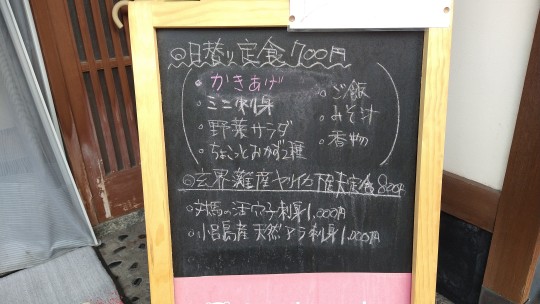 ◎日替り定食700円
・かきあげ
・ミニ刺身
・野菜サラダ
・ちょっとおかず2種
・ご飯
・みそ汁
・香物
◎玄界灘産ヤリイカ天定食800円
・対馬の活穴子刺身1,000円
・小呂島産天然アラ刺身1,000円